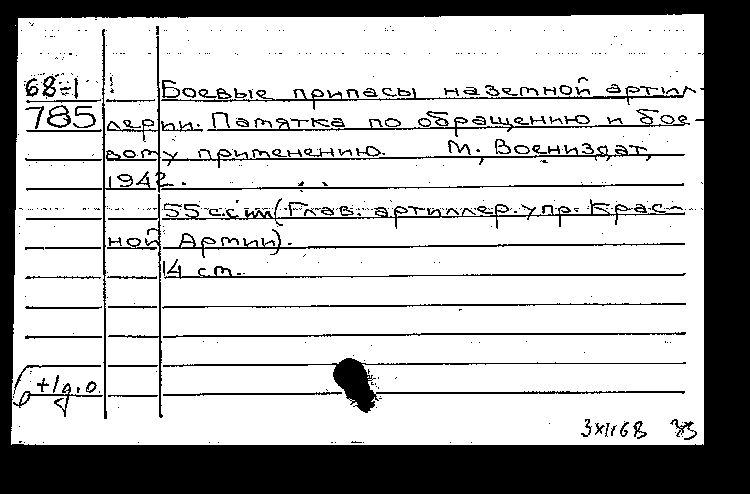 68-1 Боевые припасы наземной артил-
785 лерии. Памятка по обращению и бое-
вому применению. М., Воениздат,
1942.
55 с. с ил (Глав. артиллер. упр. Крас-
ной Армии).
14 см.